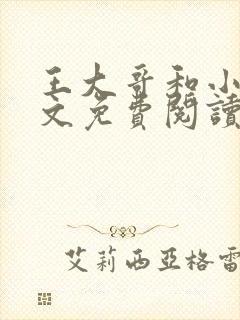 王大哥和小
文免費閱讀
艾莉西亞格雷